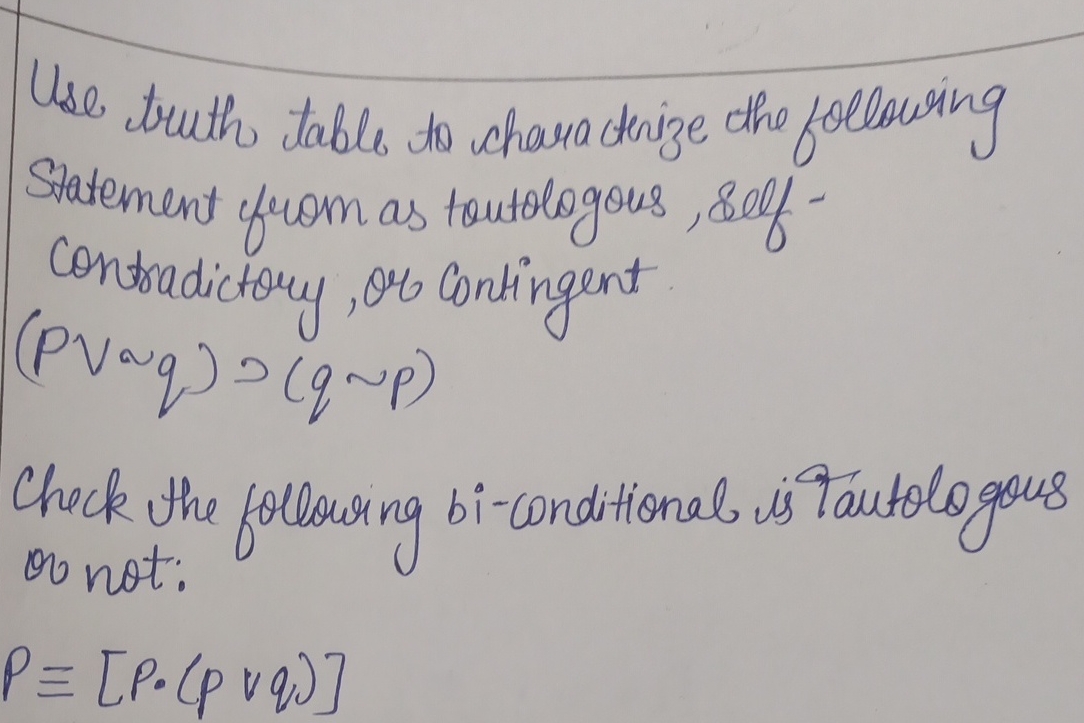 Use truth table to characterize the following
Statement from as toutologous, self-
Contradictory, or Contingent.
(P∨~q) ⊃ (q ~p)
Check the following bi-conditional is Tautologous
or not:
P ≡ [P·(p ∨ q)]